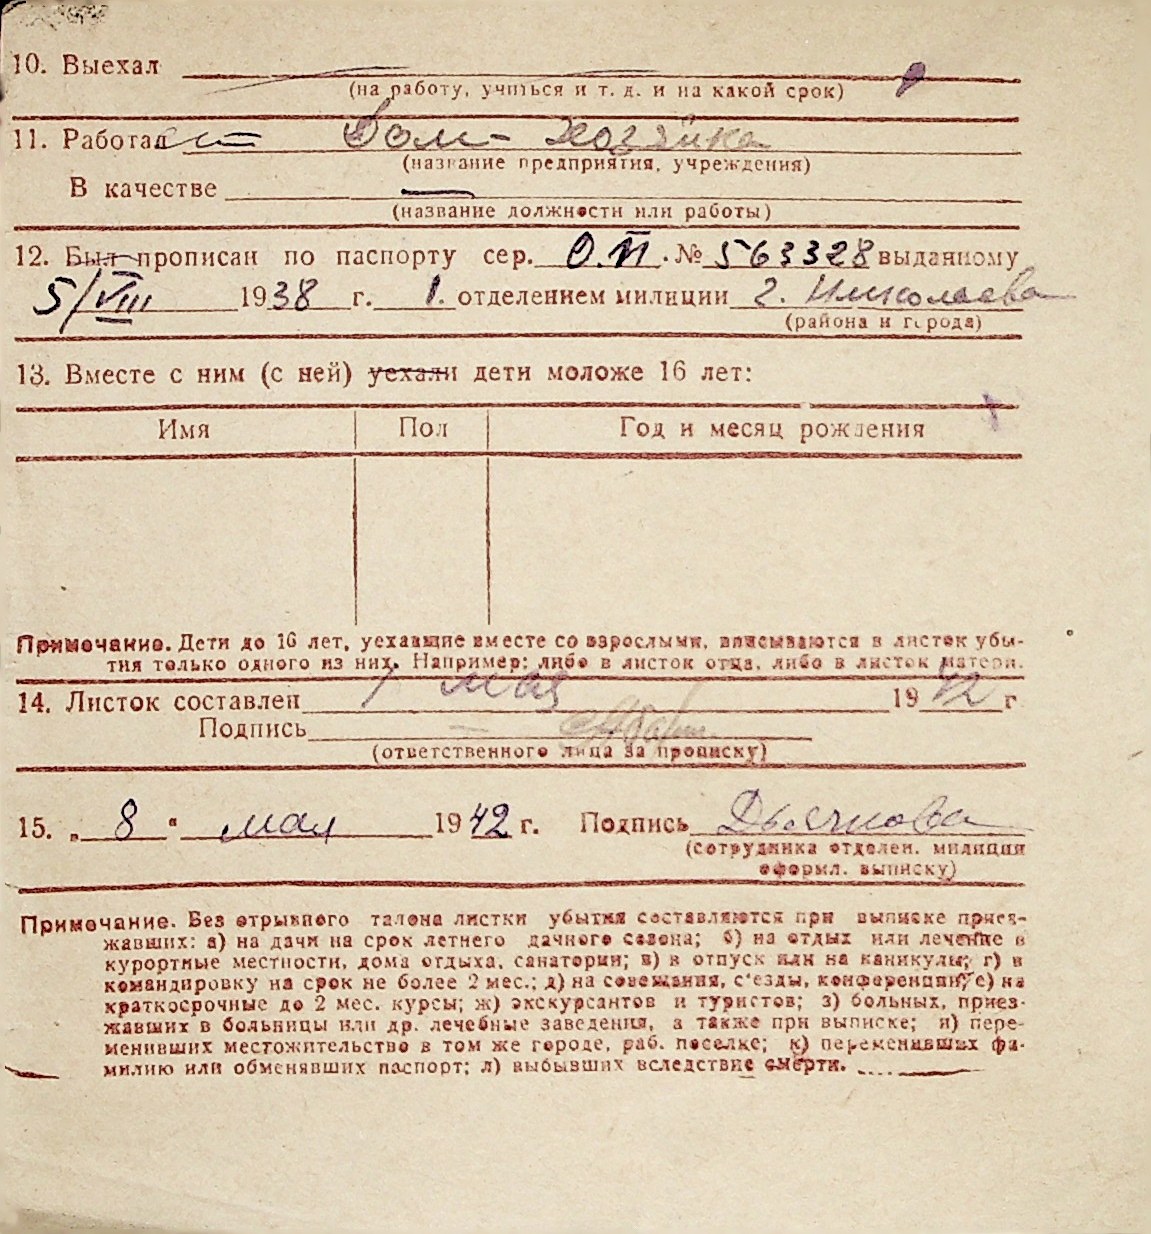 10. Выехал
(на работу, учиться и т. д. и на какой срок)
11. Работает Дом-хозяйка
(название предприятия, учреждения)
В качестве —
(название должности или работы)
12. Был прописан по паспорту сер. О.П. № 563328 выданному
5/VIII 1938 г. 1. отделением милиции г. Николаева
(района и города)
13. Вместе с ним (с ней) уехали дети моложе 16 лет:
Имя Пол Год и месяц рождения
Примечание. Дети до 16 лет, уехавшие вместе со взрослыми, вписываются в листок убы-
тия только одного из них. Например: либо в листок отца, либо в листок матери.
14. Листок составлен 7 мая 1942 г
Подпись
(ответственного лица за прописку)
15. „ 8 “ мая 1942 г. Подпись Дьячкова
(сотрудника отделен. милиции
оформл. выписку)
Примечание. Без отрывного талона листки убытия составляются при выписке приез-
жавших: а) на дачи на срок летнего дачного сезона; б) на отдых или лечение в
курортные местности, дома отдыха, санатории; в) в отпуск или на каникулы; г) в
командировку на срок не более 2 мес.; д) на совещания, с'езды, конференции; е) на
краткосрочные до 2 мес. курсы; ж) экскурсантов и туристов; з) больных, приез-
жавших в больницы или др. лечебные заведения, а также при выписке; и) пере-
менивших местожительство в том же городе, раб. поселке; к) переменивших фа-
милию или обменявших паспорт; л) выбывших вследствие смерти.